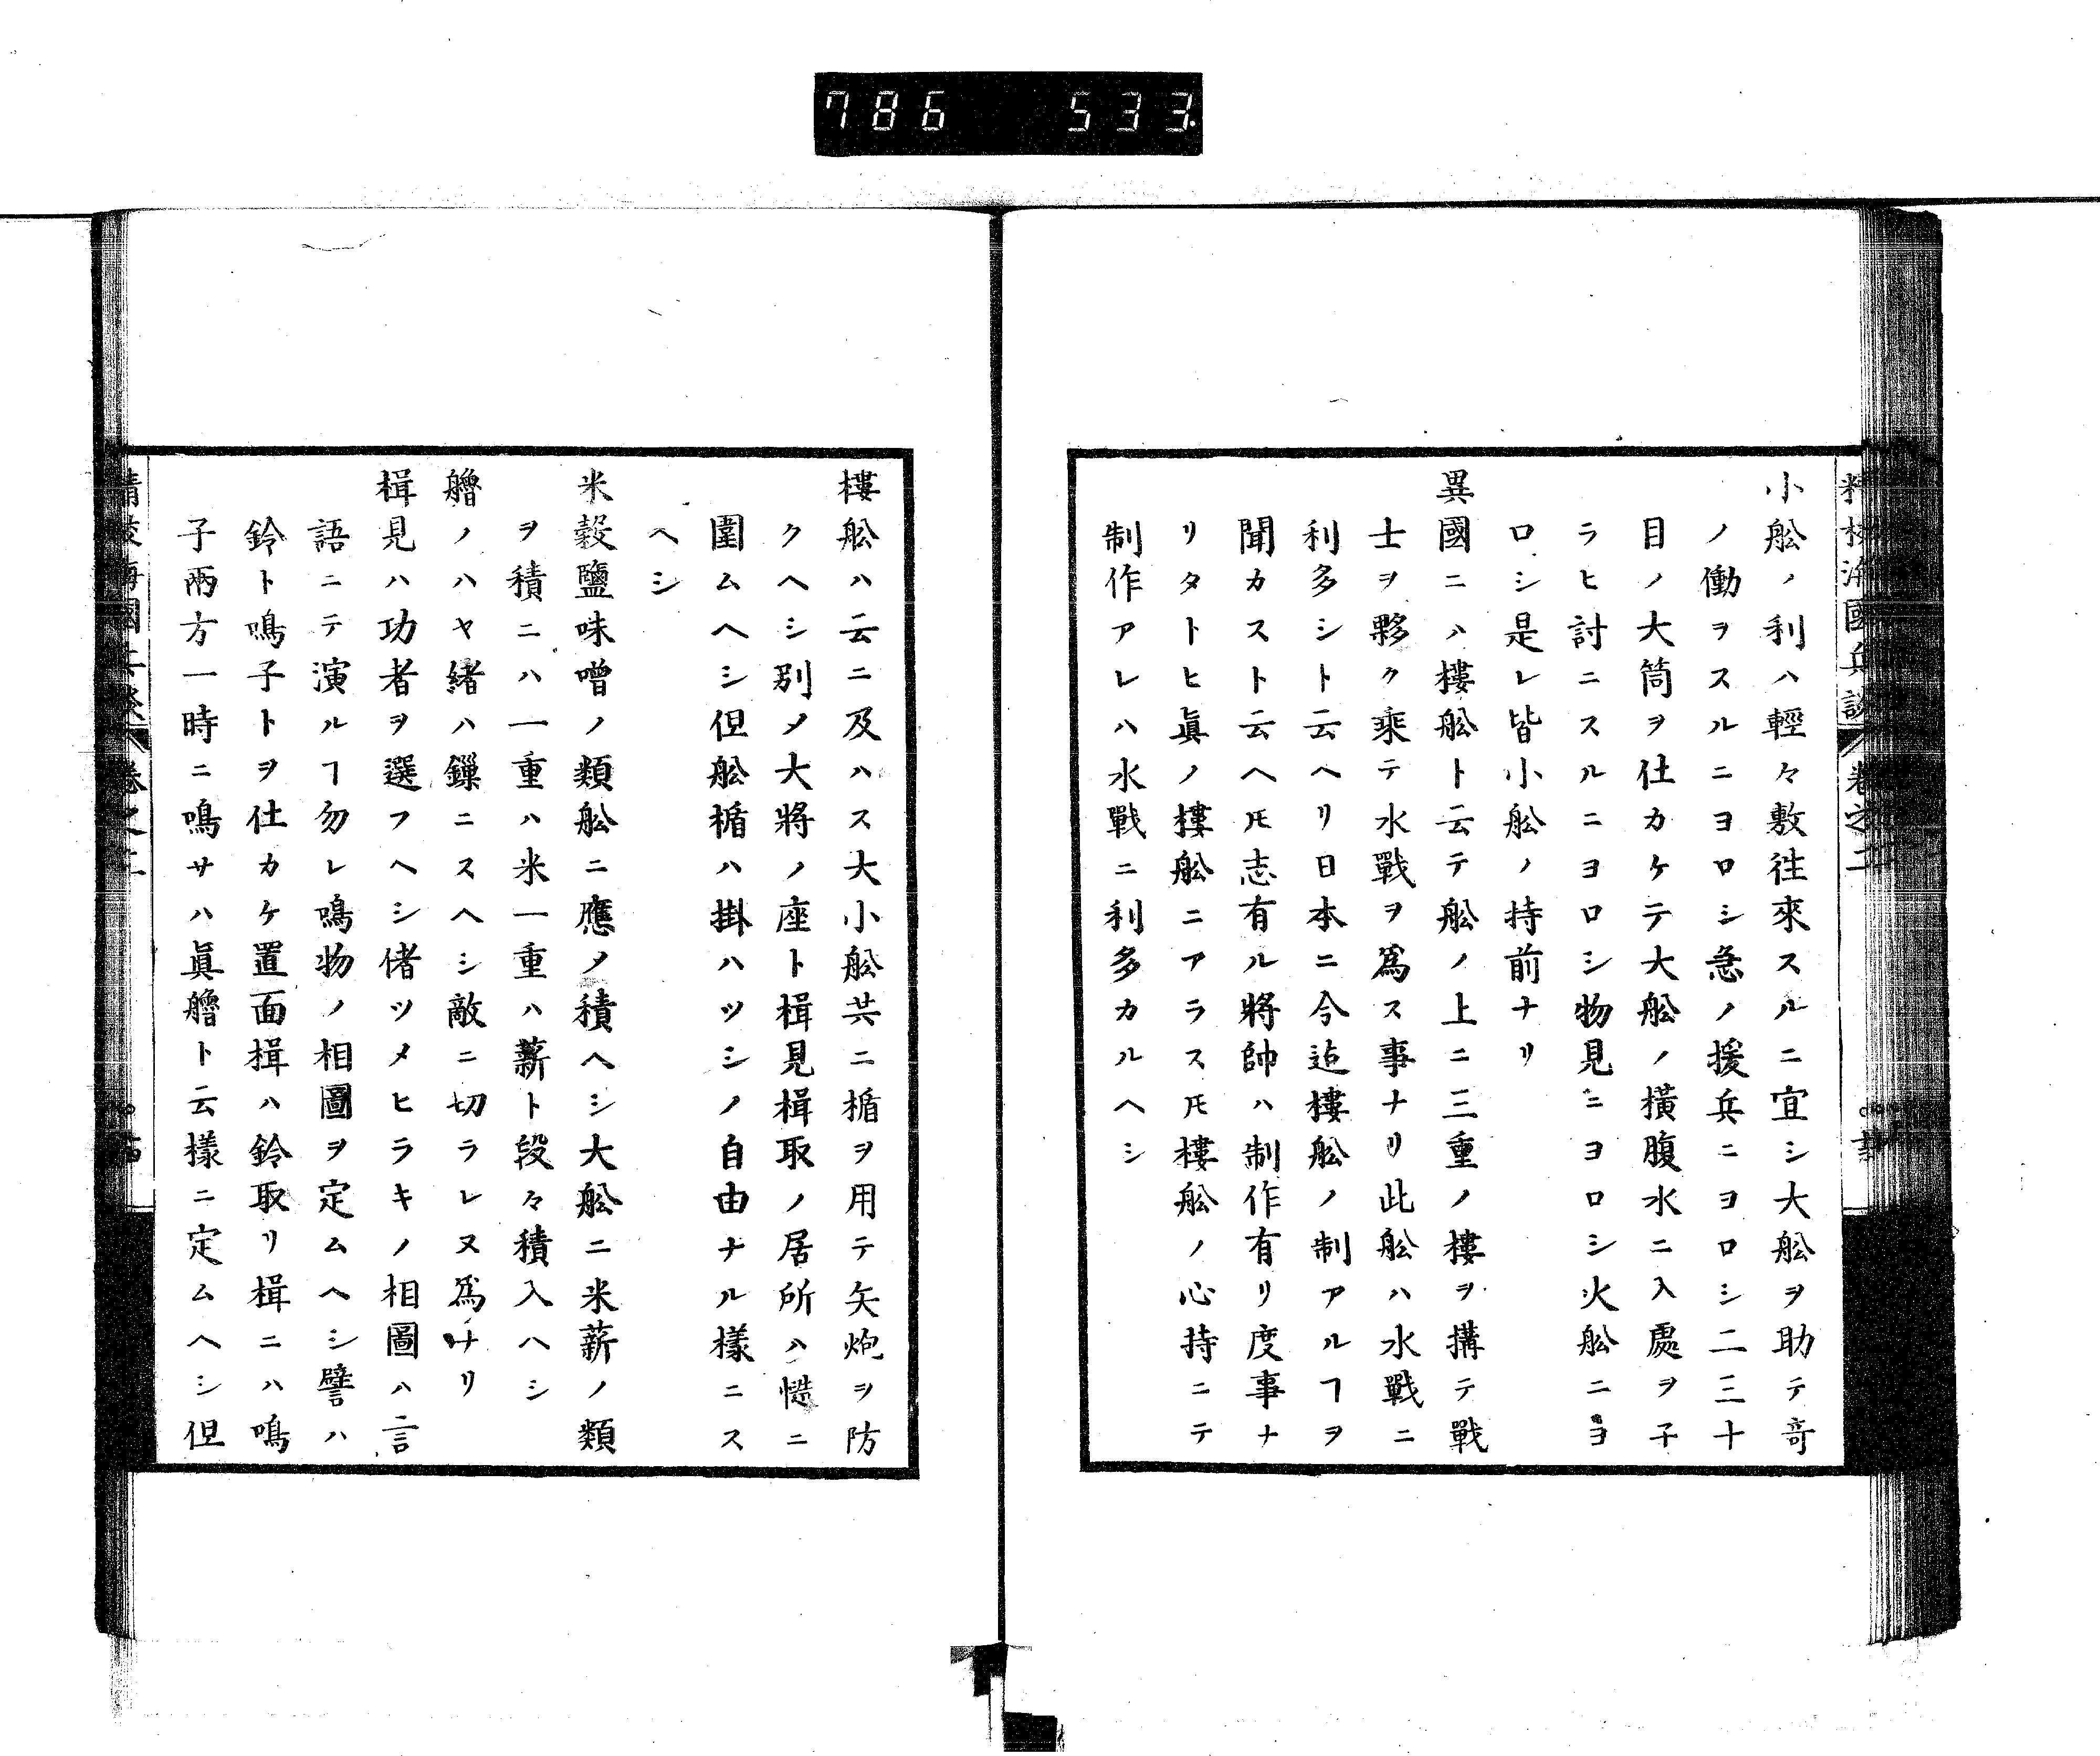 786 533
小舩ノ利ハ輕々敷往來スルニ宜シ大舩ヲ助テ竒
ノ働ヲスルニヨロシ急ノ援兵ニヨロシ二三十
目ノ大筒ヲ仕カケテ大舩ノ橫腹水ニ入處ヲ子
ラヒ討ニスルニヨロシ物見ニヨロシ火舩ニヨ
ロシ是レ皆小舩ノ持前ナリ
異國ニハ樓舩ト云テ舩ノ上ニ三重ノ樓ヲ搆テ戰
士ヲ夥ク乘テ水戰ヲ爲ス事ナリ此舩ハ水戰ニ
利多シト云ヘリ日本ニ今迠樓舩ノ制アルヿヲ
聞カスト云ヘ𪜈志有ル將帥ハ制作有リ度事ナ
リタトヒ眞ノ樓舩ニアラス𪜈樓舩ノ心持ニテ
制作アレハ水戰ニ利多カルヘシ
樓舩ハ云ニ及ハス大小舩共ニ楯ヲ用テ矢炮ヲ防
クヘシ別メ大將ノ座ト楫見楫取ノ居所ハ慥ニ
圍ムヘシ但舩楯ハ掛ハツシノ自由ナル樣ニス
ヘシ
米糓鹽味噌ノ類舩ニ應ノ積ヘシ大舩ニ米薪ノ類
ヲ積ニハ一重ハ米一重ハ薪ト段々積入ヘシ
艪ノハヤ緒ハ鏁ニスヘシ敵ニ切ラレヌ爲ナリ
楫見ハ功者ヲ選フヘシ偖ツメヒラキノ相圖ハ言
語ニテ演ルヿ勿レ鳴物ノ相圖ヲ定ムヘシ譬ハ
鈴ト鳴子トヲ仕カケ置面楫ハ鈴取リ楫ニハ鳴
子兩方一時ニ鳴サハ眞艪ト云樣ニ定ムヘシ但
海國兵談 卷之二